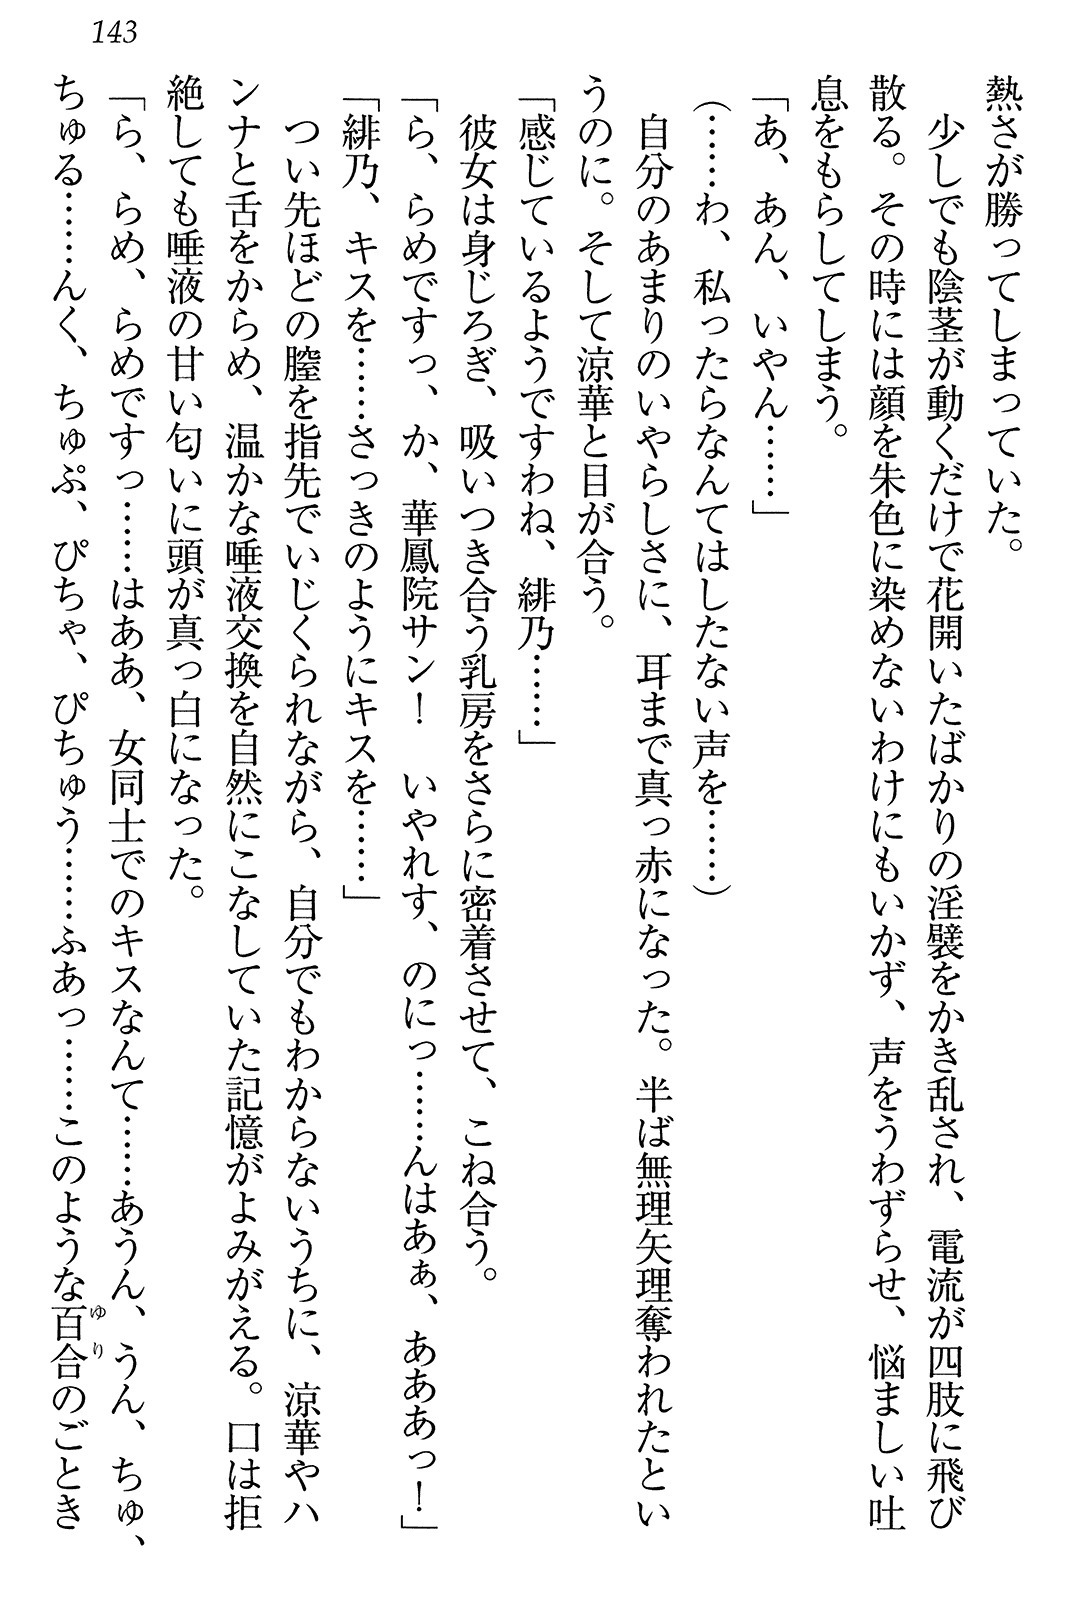 143
熱さが勝ってしまっていた。
少しでも陰茎が動くだけで花開いたばかりの淫襞をかき乱され、電流が四肢に飛び
散る。その時には顔を朱色に染めないわけにもいかず、声をうわずらせ、悩ましい吐
息をもらしてしまう。
「あ、あん、いやん……」
（……わ、私ったらなんてはしたない声を……）
自分のあまりのいやらしさに、耳まで真っ赤になった。半ば無理矢理奪われたとい
うのに。そして涼華と目が合う。
「感じているようですわね、緋乃……」
彼女は身じろぎ、吸いつき合う乳房をさらに密着させて、こね合う。
「ら、らめですっ、か、華鳳院サン！　いやれす、のにっ……んはあぁ、あああっ！」
「緋乃、キスを……さっきのようにキスを……」
つい先ほどの膣を指先でいじくられながら、自分でもわからないうちに、涼華やハ
ンナと舌をからめ、温かな唾液交換を自然にこなしていた記憶がよみがえる。口は拒
絶しても唾液の甘い匂いに頭が真っ白になった。
「ら、らめ、らめですっ……はああ、女同士でのキスなんて……あうん、うん、ちゅ、
ちゅる……んく、ちゅぷ、ぴちゃ、ぴちゅう……ふあっ……このような百合のごとき
ゆり